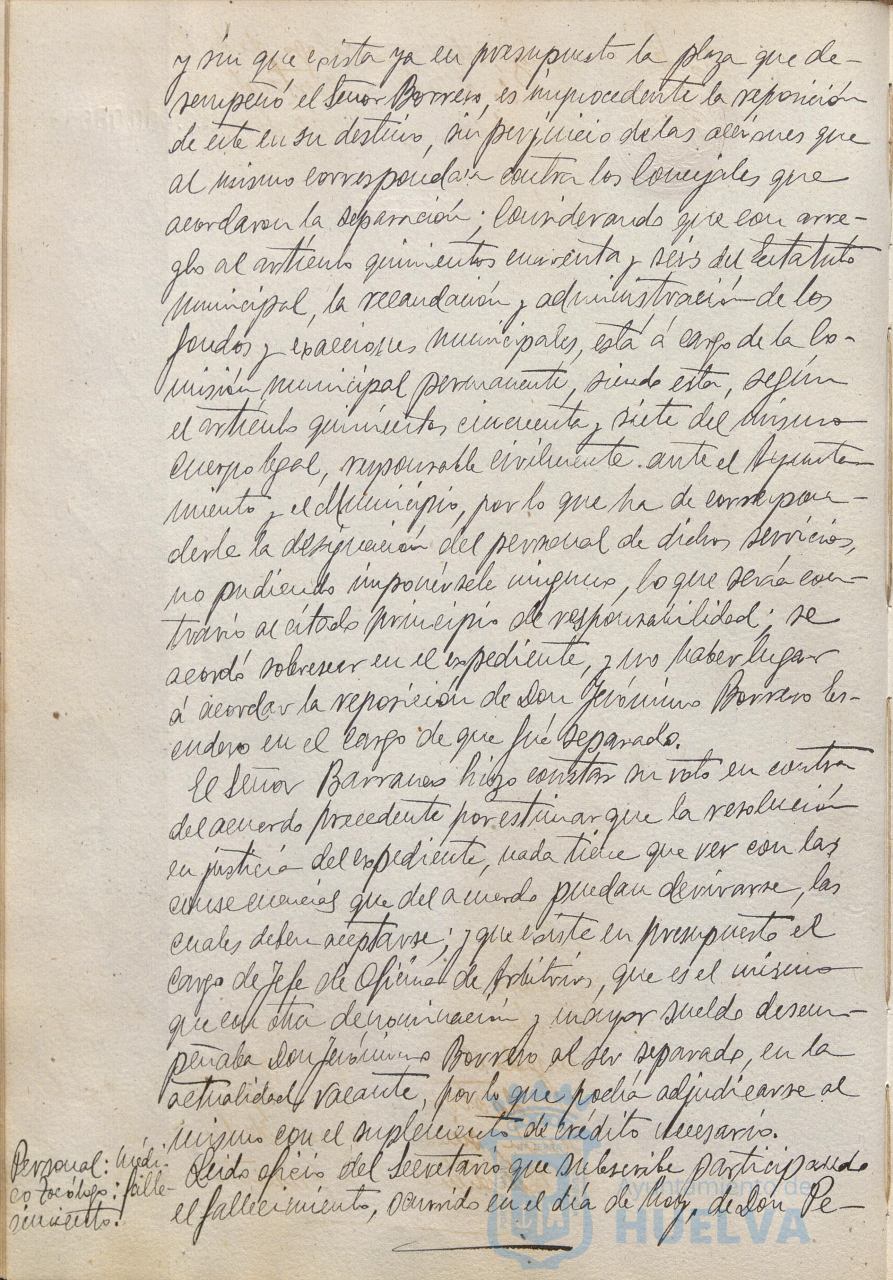 y sin que exista ya en presupuesto la plaza que de-
sempeñó el Señor Borrero, es improcedente la reposición
de este en su destino, sin perjuicio de las acciones que
al mismo correspondan contra los Concejales que
acordaron la separación; Considerando que con arre-
glo al artículo quinientos cuarenta y seis del Estatuto
municipal, la recaudación y administración de los
fondos y exacciones municipales, está á cargo de la Co-
misión municipal permanente, siendo esta, según
el artículo quinientos cincuenta y siete del mismo
cuerpo legal, responsable civilmente ante el Ayunta-
miento y el Municipio, por lo que ha de correspon-
derle la designación del personal de dichos servicios,
no pudiendo imponérsele ninguno, lo que sería con-
trario al citado principio de responsabilidad; se
acordó sobreseer en el expediente, y no haber lugar
á acordar la reposición de Don Jerónimo Borrero Es-
cudero en el cargo de que fué separado.
El Señor Barranco hizo constar su voto en contra
del acuerdo precedente por estimar que la resolución
en justicia del expediente, nada tiene que ver con las
consecuencias que del acuerdo puedan derivarse, las
cuales deben aceptarse; y que existe en presupuesto el
cargo de Jefe de Oficina de Arbitrios, que es el mismo
que con otra denominación y mayor sueldo desem-
peñaba Don Jerónimo Borrero al ser separado, en la
actualidad vacante, por lo que podría adjudicarse al
mismo con el suplemento de crédito necesario.
Personal: médi-
co tocólogo: falle-
cimiento.
Leido oficio del Secretario que subscribe participando
el fallecimiento, ocurrido en el día de hoy, de Don Pe-
Ayuntamiento de
HUELVA